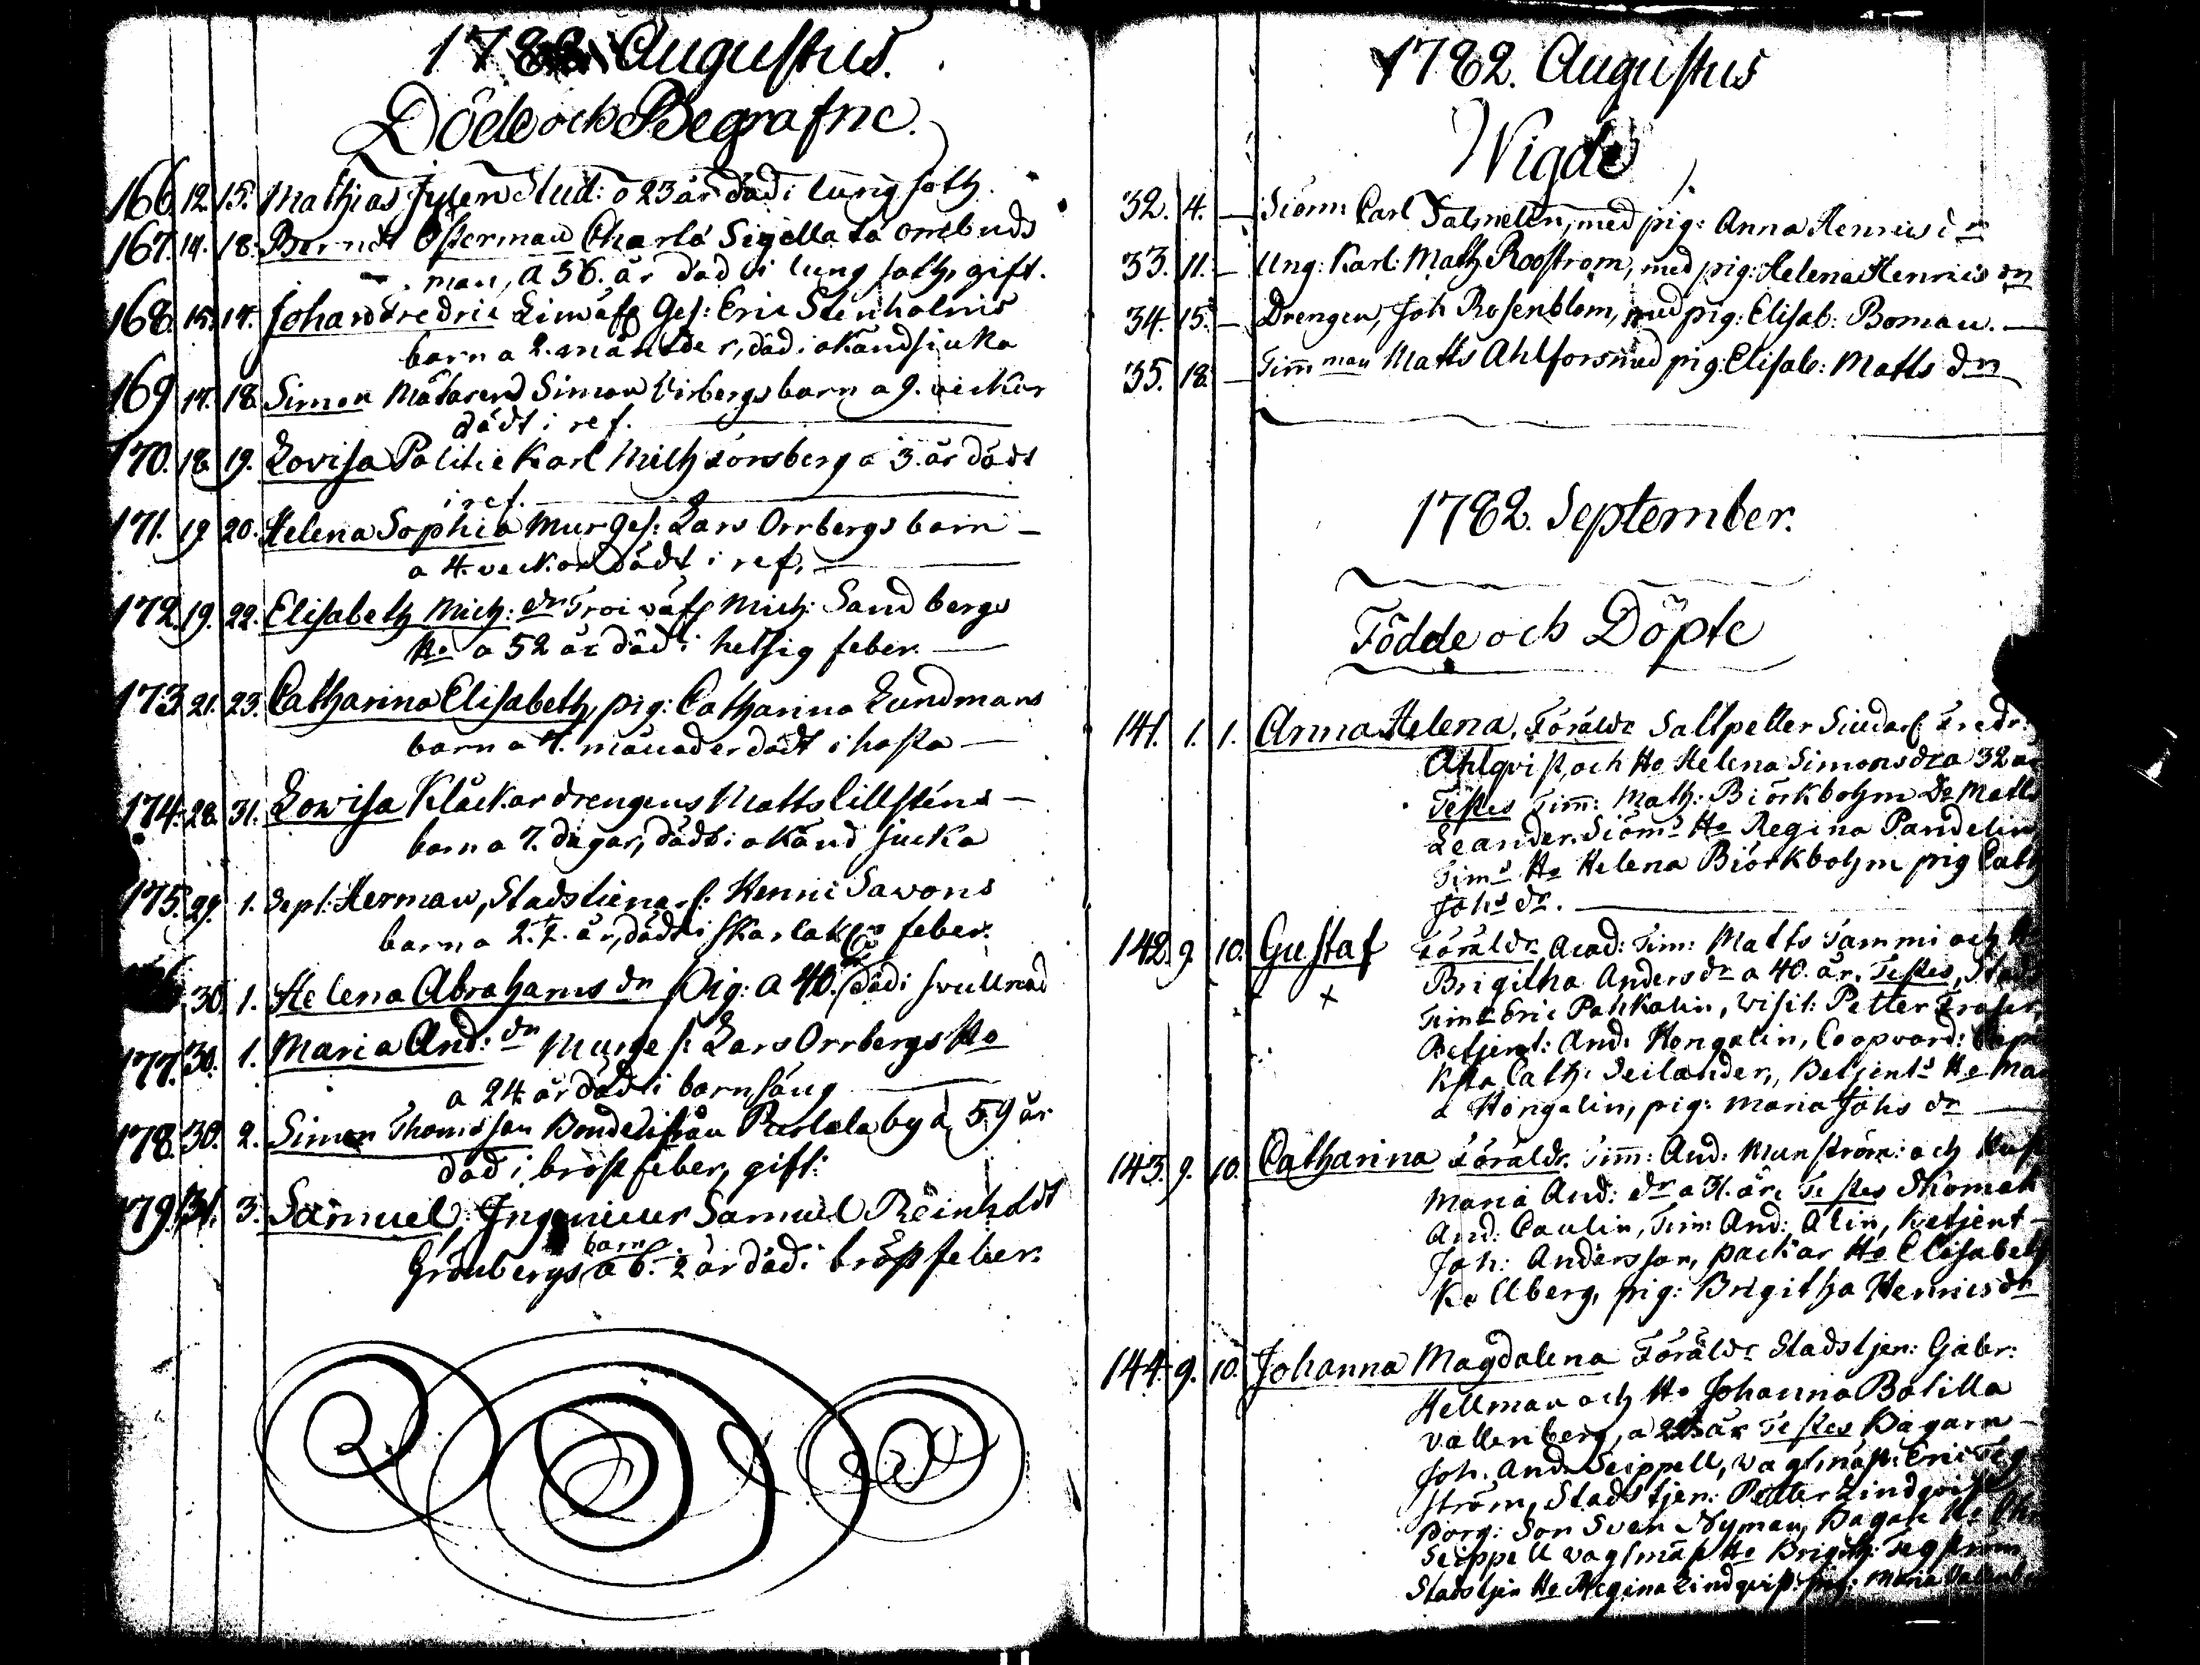 1782 Augustus.
Döde och Begrafne.
166. 12. 15. Mathias Jusen Stud: a 23 år död i lung soth.
167. 14. 18. Berndt Österman Charta Sigillata ombuds
man, a 56. år död i lung soth, gift.
168. 15. 17. Johan Fredric Linwäf: Ges: Eric Stenholms
barn a 2. månader, död i okänd siuka
169 17. 18. Simon Mätarens Simon Wirbergs barn a 9. veckor
dödt i ref.
170. 18. 19. Lovisa Politie Karl Mich: örnsberg a 3. år dödt
i ref.
171. 19 20. Helena Sophia Mur Ges: Lars Orrbergs barn –
a 4. veckor dödt i ref.
172. 19. 22. Elisabeth Mich: dr Mich: Sandbergs
Ho a 52 år död i hetsig feber.
173 21. 23. Catharina Elisabeth, pig: Catharina Lundmans
barn a 7. månader dödt i hosta –
174. 28. 31. Lowisa Kläckar drengens Matts Lillsténs –
barn a 7. dagar, dödt i okänd sjucka
175. 29. 1. Sept: Herman, Stadstienar: Henric Savons
barn a 2. ½. år, dödt i skarlak feber.
30. 1. Helena Abrahams dr Pig: a 40. död i svullnad
177. 30. 1. Maria And: dr Murges: Lars Orrbergs Ho
a 24 år död i barnsäng
178. 30. 2. Simon Thomsson Bonde ifrån by a 59 år
död i bröstfeber, gift:
179. 31. 3. Samuel, Ingenieur Samuel Reinholdt
barn
Grönbergs a 6. ½ år död i bröstfeber.
1782. Augustus
Wigde
32. 4. – Siöm: Carl Salmelin, med pig: Anna Henrics dr
33. 11. – Ung: Karl: Math Roström, med pig: Helena Henrics dr
34. 15. – Drengen, Joh Rosenblom, med pig: Elisab: Boman. –
35. 18 – Timman Matts Ahlfors med pig: Elisab: Matts dr
1782. September.
Födde och Döpte
141. 1. 1. Anna Helena, Föräldr Saltpetter Siudar: Fredr:
Ahlqvist, och Ho Helena Simonsdr a 32 år
Testes Timm: Math: Biörkbohm Dr Matts
Leander. Siöms Ho Regina Pandelin
Tims Ho Helena Biörkbohm pig Cath
Johs dr.
142. 9. 10. Gustaf Föräldr, Acad: Tim: Matts Sammi och
Brigitha Anders dr a 40. år, Testes,
Tim: Eric Pahkalin, Visit: Petter Fraser,
Betjent: And: Hongelin, Coopvard:
Cath: Seilander, Betjents Ho Mar
a Hongelin, pig: Maria Johs dr
143. 9. 10. Catharina Föräldr. Timm: And: Munström och Hust
Maria And: dr a 31. år, Testes Skomak
And: Paulin, Tim: And: Alin, betjent –
Joh: Andersson, packar Ho Elisabeth
Kellberg, pig: Brigitha Henricsdr
144. 9. 10. Johanna Magdalena Föräldr Stadstjen: Gabr:
Hellman och Ho Johanna Botilla
Vallenberg, a 22 år Testes Bagarn –
Joh. And: Seippell, Vagtmäst: Eric Teg
ström, Stadstjen: Petter Lindqvist
Borg: Son Sven Nyman, Bagar Ho
Seippell vagtmäst Ho Brigith: Tegström
Stadstjen Ho Regina Lindqvist: pig: Maria